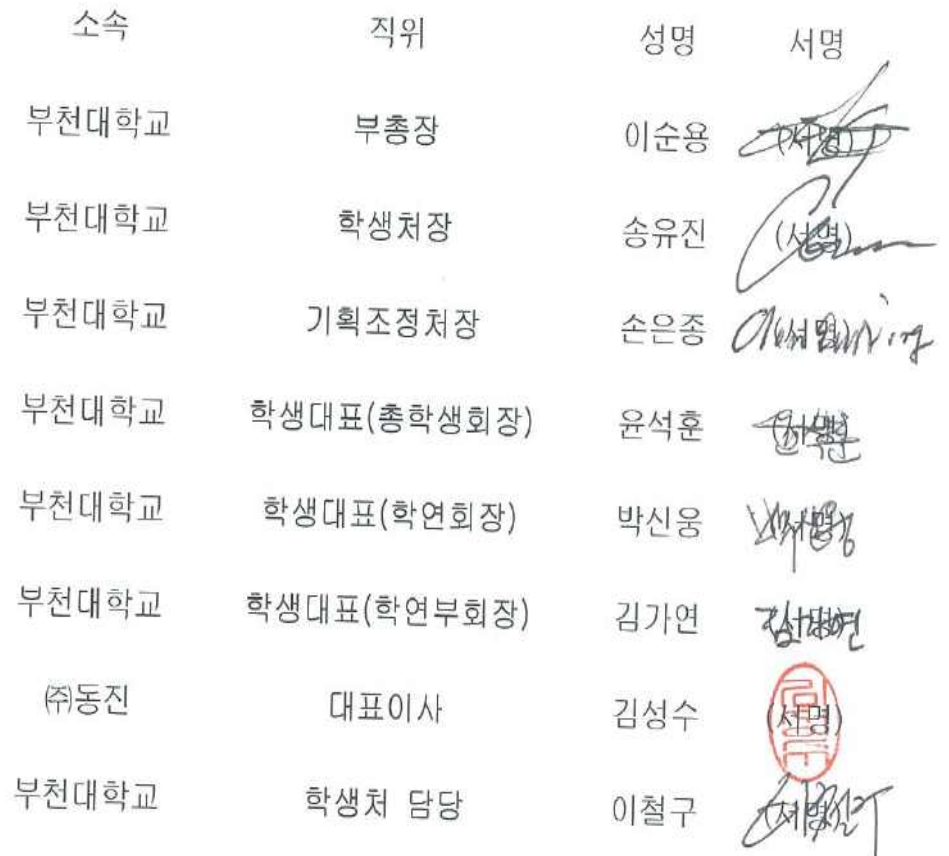 소속 직위 성명 서명
부천대학교 부총장 이순용 (서명)
부천대학교 학생처장 송유진 (서명)
부천대학교 기획조정처장 손은종 (서명)
부천대학교 학생대표(총학생회장) 윤석훈 (서명)
부천대학교 학생대표(학연회장) 박신웅 (서명)
부천대학교 학생대표(학연부회장) 김가연 (서명)
㈜동진 대표이사 김성수 (서명)
부천대학교 학생처 담당 이철구 (서명)